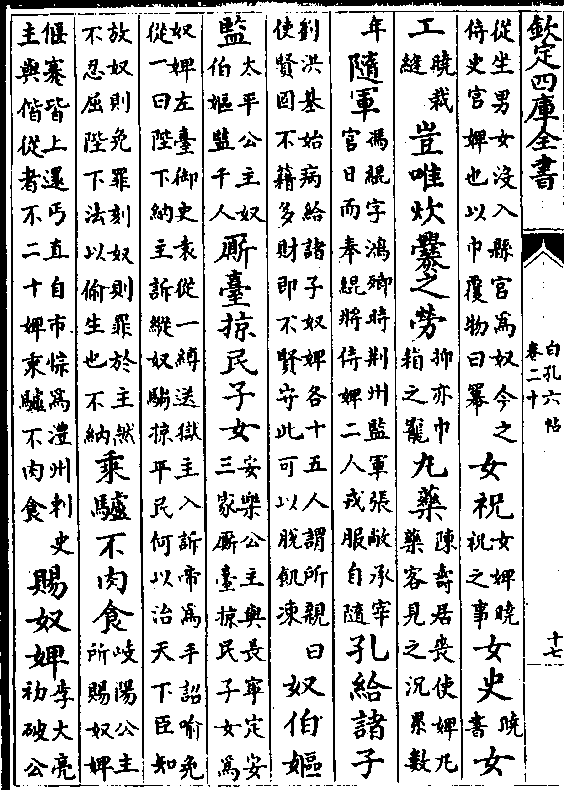 欽定四庫全書
白孔六帖
卷二十
十七
從坐男女沒入縣官為奴今之侍史官婢也以巾覆物曰冪女祝女婢曉祝之事女史曉書女
工曉裁縫豈唯炊爨之勞抑亦巾箱之寵丸藥陳壽居喪使婢丸藥客見之沉累數
年隨軍馮緄字鴻卿時荆州監軍張敞承宰官日而奉緄將侍婢二人戎服自隨孔給諸子
劉洪基始病給諸子奴婢各十五人謂所親曰使賢固不籍多財即不賢守此可以脫飢凍奴伯嫗
監太平公主奴伯嫗監千人厮臺掠民子女安樂公主與長寧定安三家厮臺掠民子女為
奴婢左臺御史袁從一縛送獄主入訴帝為手詔喻免從一曰陛下納主訴縱奴騶掠平民何以治天下臣知
放奴則免罪刻奴則罪於主然不忍屈陛下法以偷生也不納乘驢不肉食岐陽公主所賜奴婢
偃蹇皆上還丐直自市悰為澧州刺史主與偕從者不二十婢乘驢不肉食賜奴婢李大亮初破公